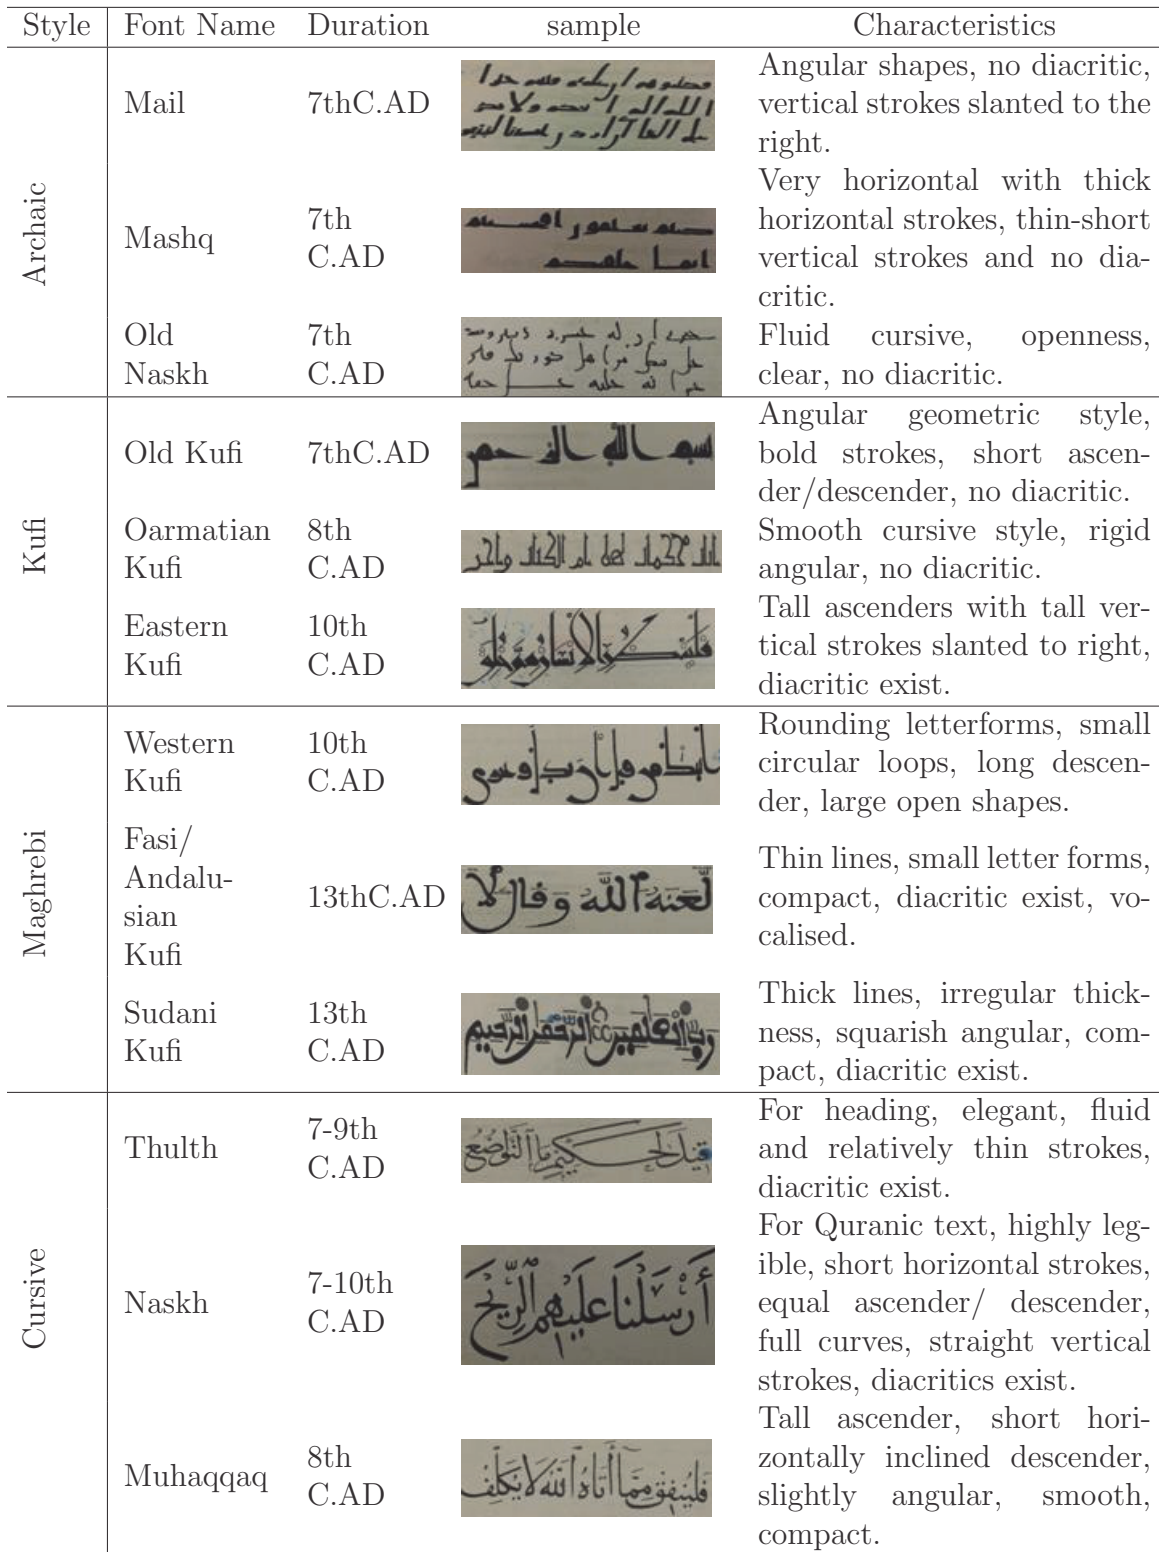 Style Font Name Duration sample Characteristics
Archaic
Mail
7thC.AD
Angular shapes, no diacritic,
vertical strokes slanted to the
right.
Mashq
7th
C.AD
Very horizontal with thick
horizontal strokes, thin-short
vertical strokes and no dia-
critic.
Old
Naskh
7th
C.AD
Fluid cursive, openness,
clear, no diacritic.
Kufi
Old Kufi
7thC.AD
Angular geometric style,
bold strokes, short ascen-
der/descender, no diacritic.
Oarmatian
Kufi
8th
C.AD
Smooth cursive style, rigid
angular, no diacritic.
Eastern
Kufi
10th
C.AD
Tall ascenders with tall ver-
tical strokes slanted to right,
diacritic exist.
Maghrebi
Western
Kufi
10th
C.AD
Rounding letterforms, small
circular loops, long descen-
der, large open shapes.
Fasi/
Andalu-
sian
Kufi
13thC.AD
لَّعَنَهُ اللَّهُ وَقَالَ لَا
Thin lines, small letter forms,
compact, diacritic exist, vo-
calised.
Sudani
Kufi
13th
C.AD
رَبِّ الْعَالَمِينَ الرَّحْمَٰنِ الرَّحِيمِ
Thick lines, irregular thick-
ness, squarish angular, com-
pact, diacritic exist.
Cursive
Thulth
7-9th
C.AD
For heading, elegant, fluid
and relatively thin strokes,
diacritic exist.
Naskh
7-10th
C.AD
أَرْسَلْنَا عَلَيْهِمُ الرِّيحَ
For Quranic text, highly leg-
ible, short horizontal strokes,
equal ascender/ descender,
full curves, straight vertical
strokes, diacritics exist.
Muhaqqaq
8th
C.AD
فَلْيُنفِقْ مِمَّا أَتَاهُ اللَّهُ لَا يُكَلِّفُ
Tall ascender, short hori-
zontally inclined descender,
slightly angular, smooth,
compact.